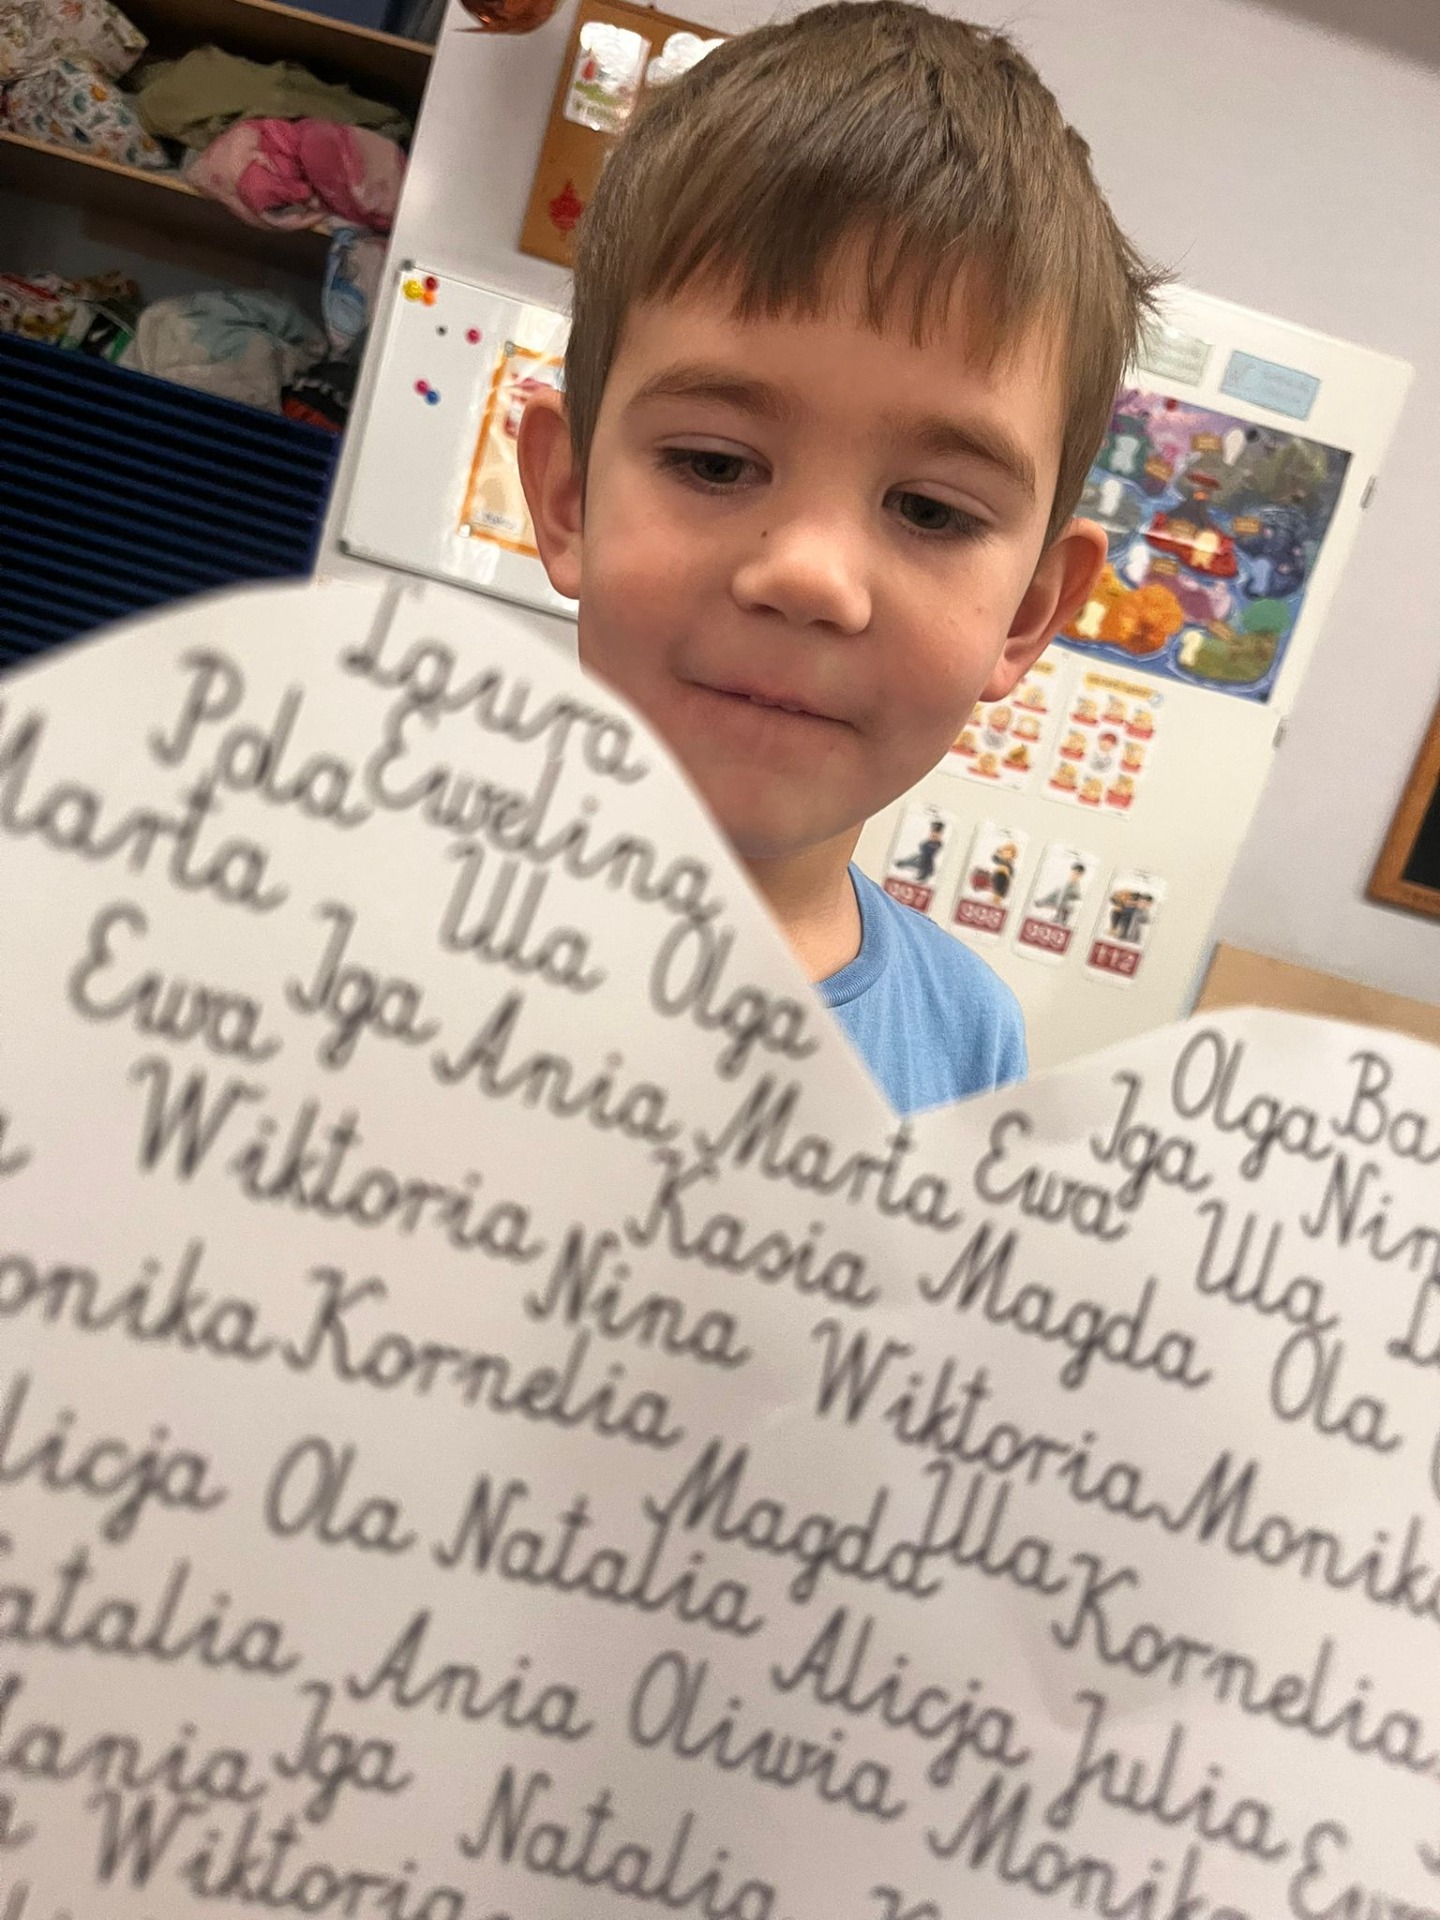 Laura
Pola Ewelina
Marta Ula Olga
Ewa Iga Ania Marta Ewa Iga Olga
Wiktoria Kasia Magda Ula
Kornelia Nina Wiktoria Monika Ola
Ola Natalia Magda Ula Kornelia
Natalia Ania Oliwia Alicja Julia
Iga Natalia Monika
Wiktoria
997
998
999
112